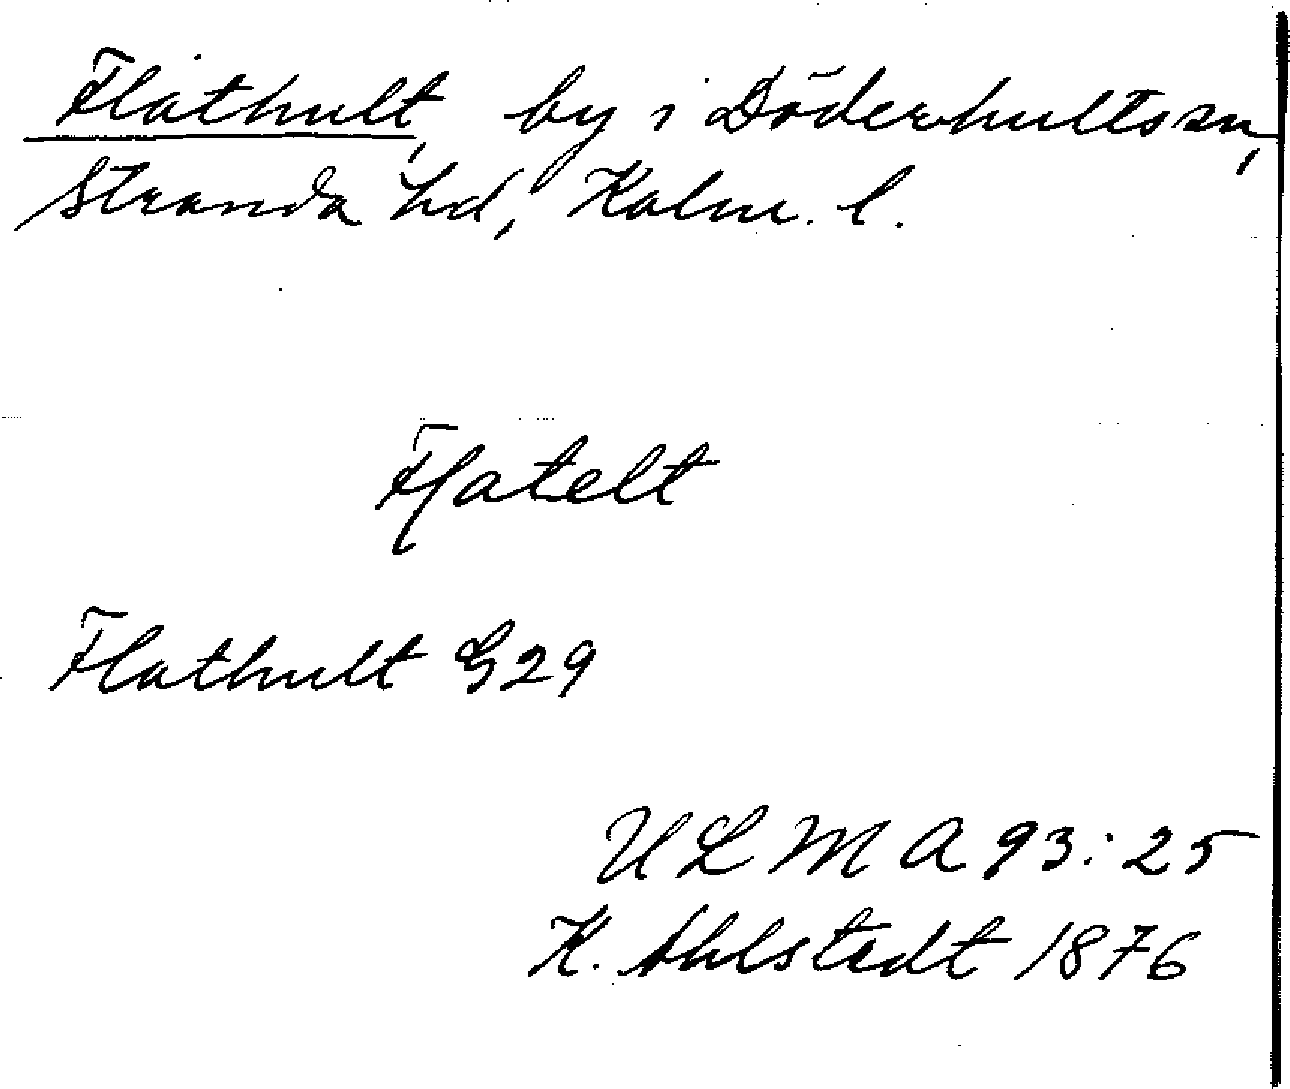 Flathult, by i Döderhults sn,
Stranda hd, Kalm. l.
Fjatelt
Flathult G29
ULMA 93:25
K. Ahlstedt 1876